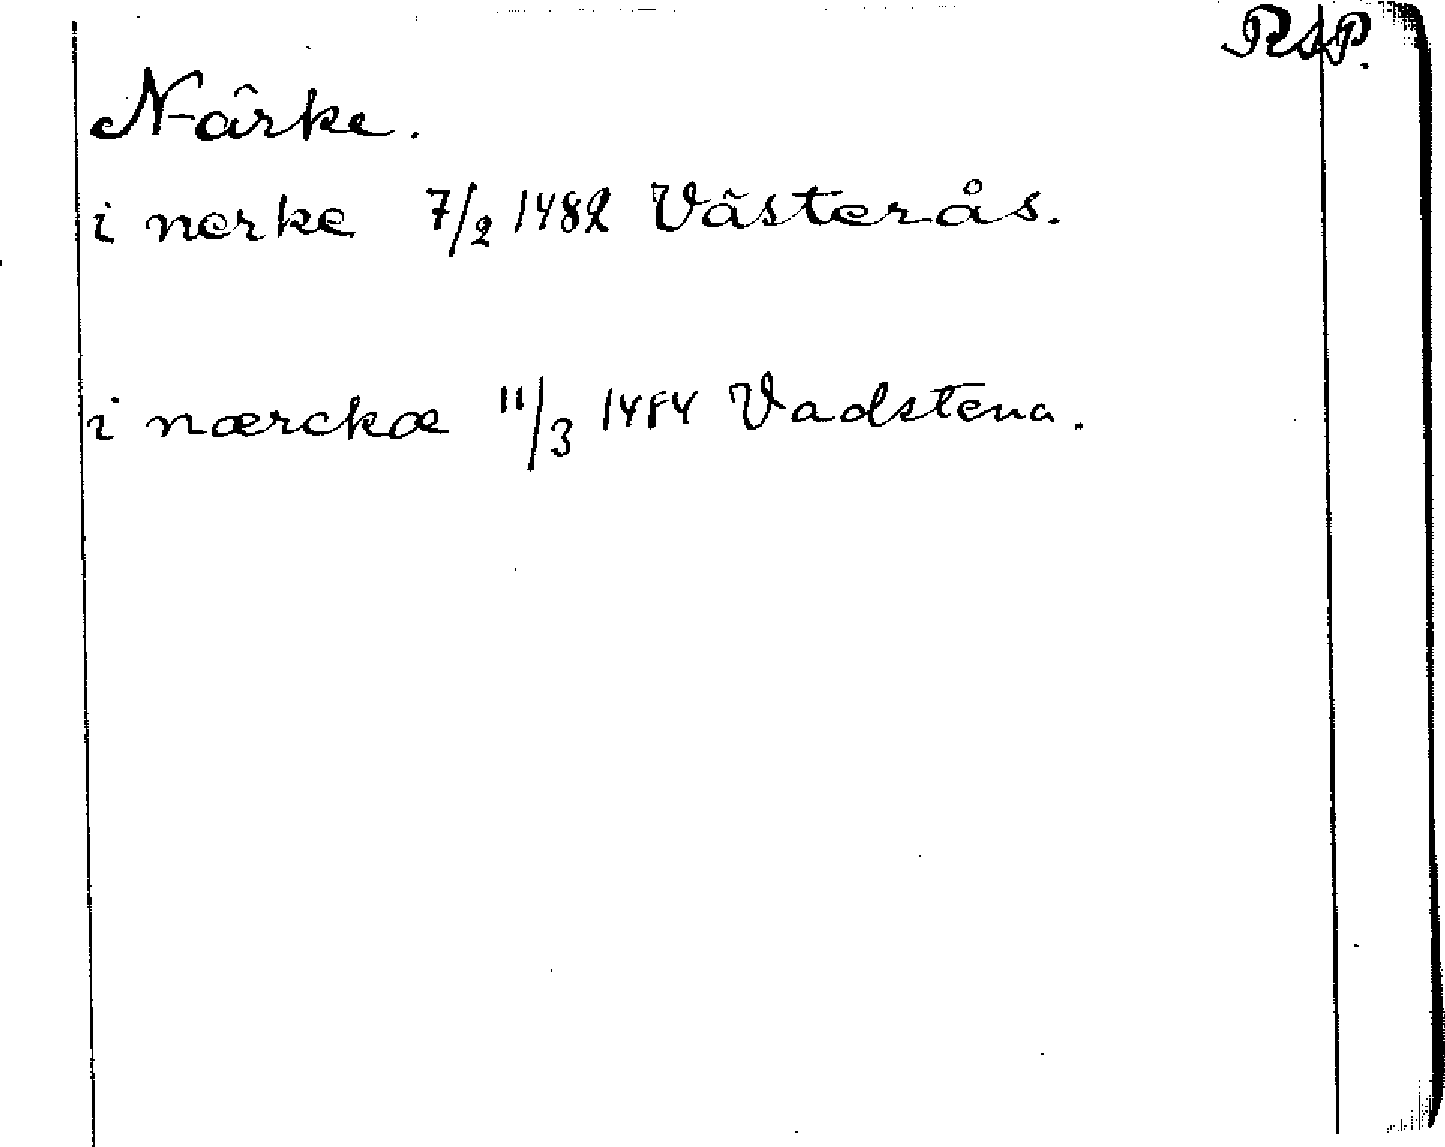 RAP.
Närke.
i nerke 7/2 1482 Västerås.
i nærckæ 11/3 1484 Vadstena.